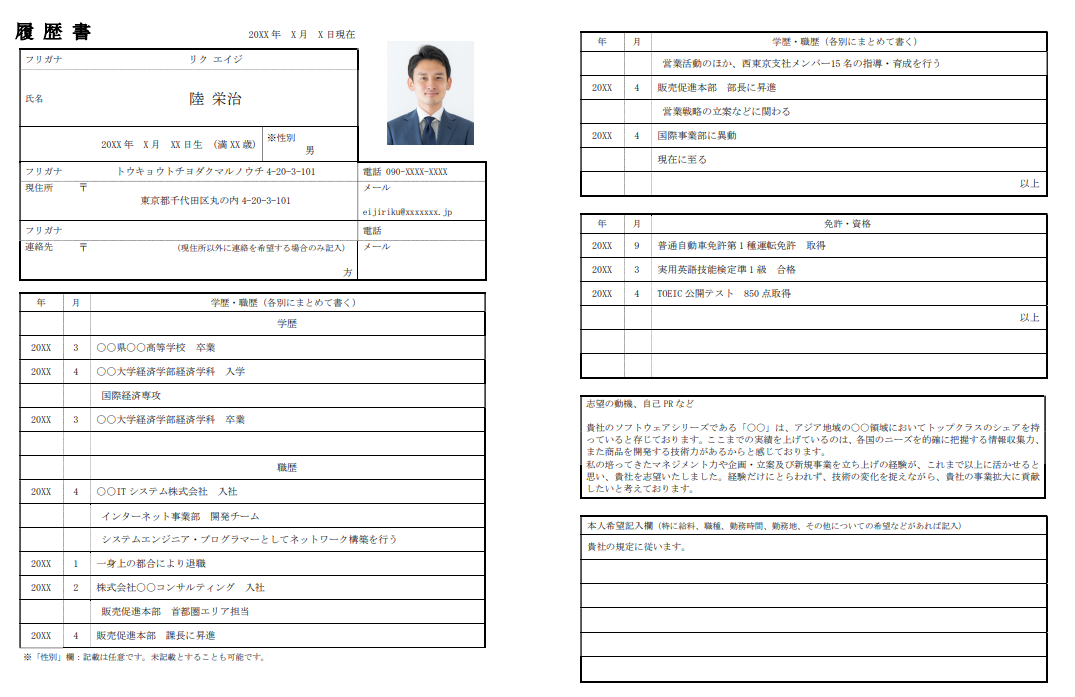 履歴書
20XX 年　X 月　X 日現在
フリガナ　リク エイジ
氏名　陸 栄治
20XX 年　X 月　XX 日生　(満 XX 歳)　※性別　男
フリガナ　トウキョウトチヨダクマルノウチ 4-20-3-101　電話 090-XXXX-XXXX
現住所　〒　メール
東京都千代田区丸の内 4-20-3-101
eijiriku@xxxxxxx.jp
フリガナ　電話
連絡先　〒　（現住所以外に連絡を希望する場合のみ記入）　メール
方
年　月　学歴・職歴（各別にまとめて書く）
学歴
20XX　3　〇〇県〇〇高等学校　卒業
20XX　4　〇〇大学経済学部経済学科　入学
国際経済専攻
20XX　3　〇〇大学経済学部経済学科　卒業
職歴
20XX　4　〇〇IT システム株式会社　入社
インターネット事業部　開発チーム
システムエンジニア・プログラマーとしてネットワーク構築を行う
20XX　1　一身上の都合により退職
20XX　2　株式会社〇〇コンサルティング　入社
販売促進本部　首都圏エリア担当
20XX　4　販売促進本部　課長に昇進
※「性別」欄：記載は任意です。未記載とすることも可能です。
年　月　学歴・職歴（各別にまとめて書く）
営業活動のほか、西東京支社メンバー15 名の指導・育成を行う
20XX　4　販売促進本部　部長に昇進
営業戦略の立案などに関わる
20XX　4　国際事業部に異動
現在に至る
以上
年　月　免許・資格
20XX　9　普通自動車免許第 1 種運転免許　取得
20XX　3　実用英語技能検定準 1 級　合格
20XX　4　TOEIC 公開テスト　850 点取得
以上
志望の動機、自己 PR など
貴社のソフトウェアシリーズである「〇〇」は、アジア地域の〇〇領域においてトップクラスのシェアを持
っていると存じております。ここまでの実績を上げているのは、各国のニーズを的確に把握する情報収集力、
また商品を開発する技術力があるからと感じております。
私の培ってきたマネジメント力や企画・立案及び新規事業を立ち上げの経験が、これまで以上に活かせると
思い、貴社を志望いたしました。経験だけにとらわれず、技術の変化を捉えながら、貴社の事業拡大に貢献
したいと考えております。
本人希望記入欄（特に給料、職種、勤務時間、勤務地、その他についての希望などがあれば記入）
貴社の規定に従います。